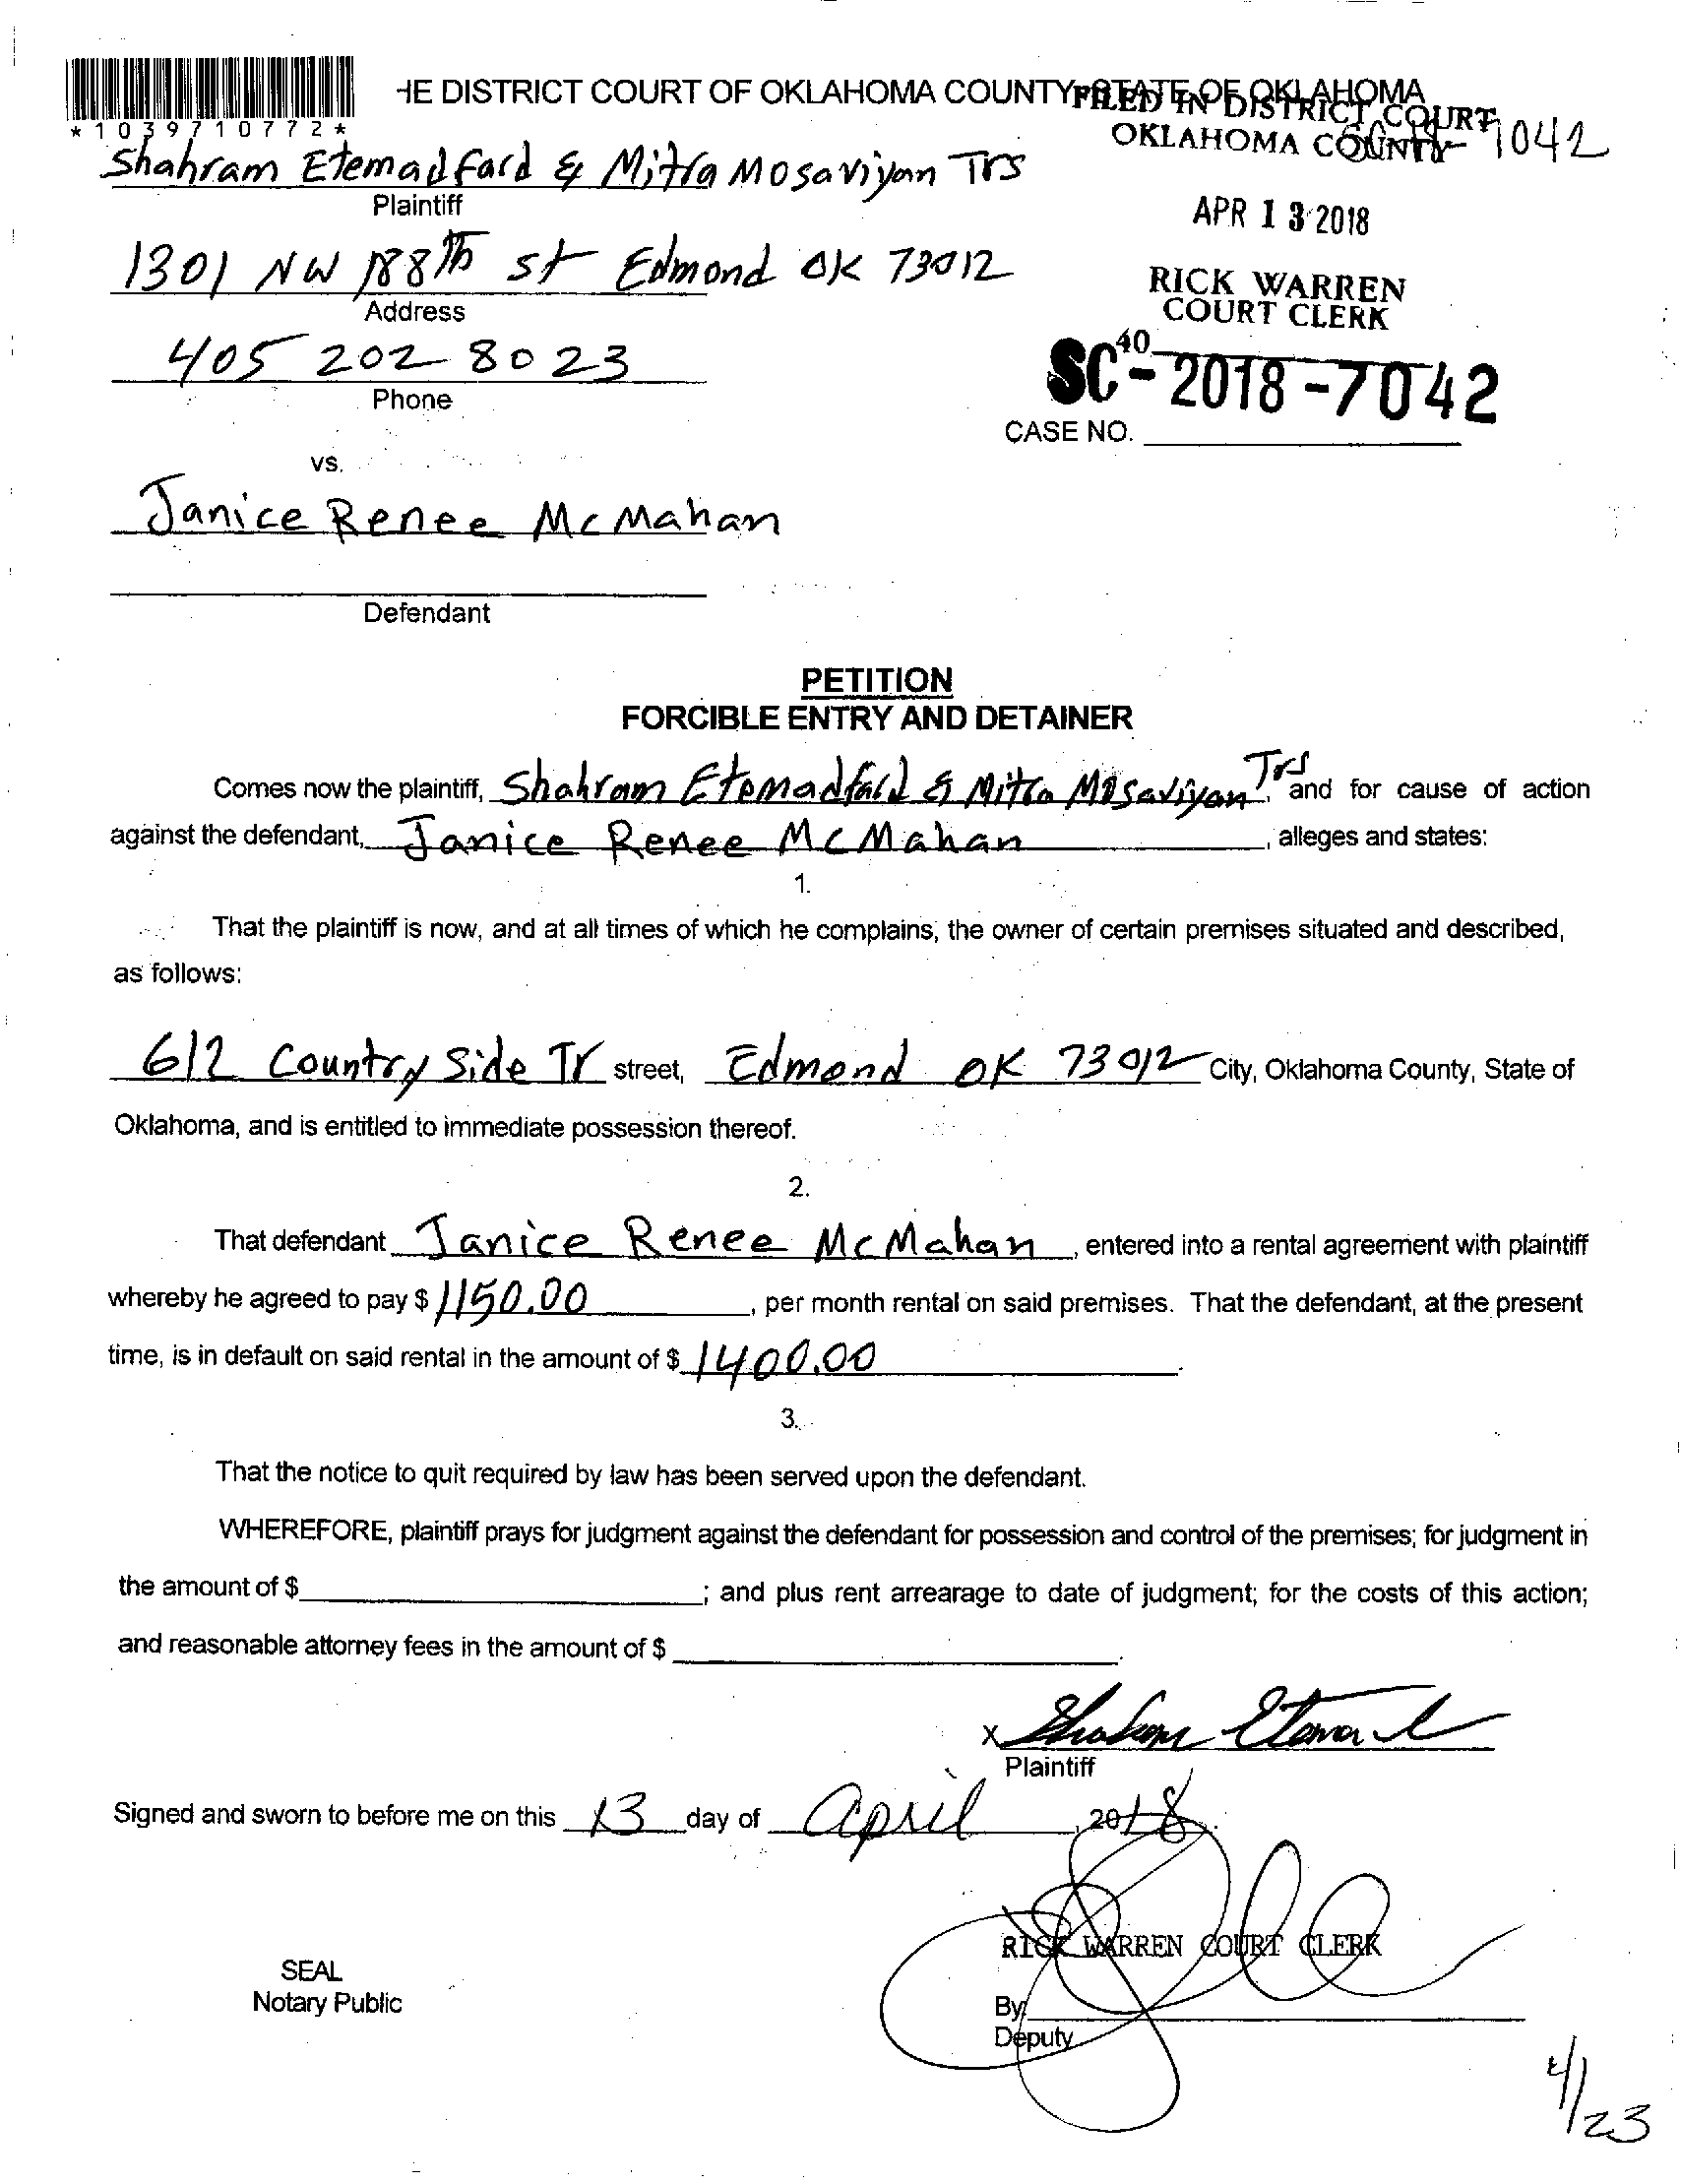 HE DISTRICT COURT OF OKLAHOMA COUNTY, STATE OF OKLAHOMA
*1039710772*
FILED IN DISTRICT COURT
OKLAHOMA COUNTY
7042
Shahram Etemadfard & Mitra Mosaviyan Trs
Plaintiff
APR 13 2018
1301 NW 188th st Edmond OK 73012
Address
RICK WARREN
COURT CLERK
405 202 8023
Phone
40
SC-2018-7042
CASE NO.
vs.
Janice Renee McMahan
Defendant
PETITION
FORCIBLE ENTRY AND DETAINER
Comes now the plaintiff, Shahram Etemadfard & Mitra Mosaviyan Trs, and for cause of action
against the defendant, Janice Renee McMahan, alleges and states:
1.
That the plaintiff is now, and at all times of which he complains, the owner of certain premises situated and described,
as follows:
612 Country Side Tr street, Edmond OK 73012 City, Oklahoma County, State of
Oklahoma, and is entitled to immediate possession thereof.
2.
That defendant Janice Renee McMahan, entered into a rental agreement with plaintiff
whereby he agreed to pay $ 1150.00, per month rental on said premises. That the defendant, at the present
time, is in default on said rental in the amount of $ 1400.00.
3.
That the notice to quit required by law has been served upon the defendant.
WHEREFORE, plaintiff prays for judgment against the defendant for possession and control of the premises; for judgment in
the amount of $ ; and plus rent arrearage to date of judgment; for the costs of this action;
and reasonable attorney fees in the amount of $ .
X
Plaintiff
Signed and sworn to before me on this 13 day of April, 2018.
RICK WARREN COURT CLERK
SEAL
Notary Public
By
Deputy
4/23